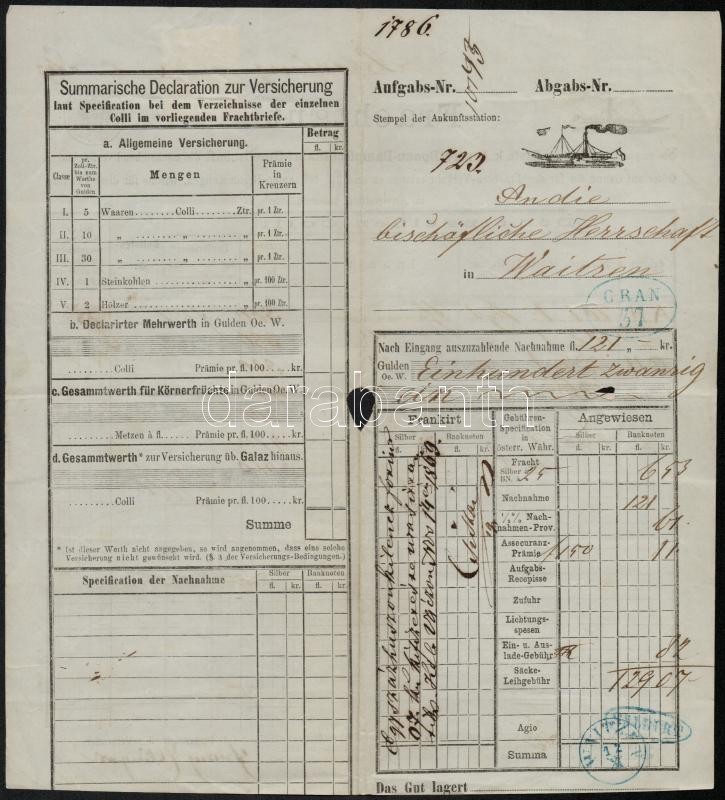 Summarische Declaration zur Versicherung
laut Specification bei dem Verzeichnisse der einzelnen
Colli im vorliegenden Frachtbriefe.
a. Allgemeine Versicherung.
Betrag
fl. kr.
Classe
pr. Zoll-Ztr. bis zum Werthe von Gulden
Mengen
Prämie in Kreuzern
I. 5 Waaren........Colli.....Ztr. pr. 1 Ztr.
II. 10 „ ........ „ ..... „ pr. 1 Ztr.
III. 30 „ ........ „ ..... „ pr. 1 Ztr.
IV. 1 Steinkohlen ........ „ pr. 100 Ztr.
V. 2 Hölzer ........ „ pr. 100 Ztr.
b. Declarirter Mehrwerth in Gulden Oe. W.
.....Colli Prämie pr. fl. 100.....kr.
c. Gesammtwerth für Körnerfrüchte in Gulden Oe. W.
.....Metzen à fl..... Prämie pr. fl. 100.....kr.
d. Gesammtwerth* zur Versicherung üb. Galaz hinaus.
.....Colli Prämie pr. fl. 100.....kr.
Summe
* Ist dieser Werth nicht angegeben, so wird angenommen, dass eine solche
Versicherung nicht gewünscht wird. (§. 3 der Versicherungs-Bedingungen.)
Specification der Nachnahme
Silber Banknoten
fl. kr. fl. kr.
1786.
Aufgabs-Nr. Abgabs-Nr.
Stempel der Ankunftsstation:
723.
An die
bischöfliche Herrschaft
in Waitzen
GRAN
57
Nach Eingang auszuzahlende Nachnahme fl. 121 „ — kr.
Gulden Oe. W. Einhundert zwanzig
ein
Frankirt
Gebühren-Specification in österr. Währ.
Angewiesen
Silber Banknoten
Silber Banknoten
fl. kr. fl. kr.
fl. kr. fl. kr.
Fracht
Silber al
BN. „ 25 653
Nachnahme 121
½% Nachnahmen-Prov. 61
Assecuranz-Prämie 150 91
Aufgabs-Recepisse
Zufuhr
Lichtungsspesen
Ein- u. Auslade-Gebühr 82
Säcke-Leihgebühr
129 07
Agio
Summa
WAITZEN
Das Gut lagert
darabanth